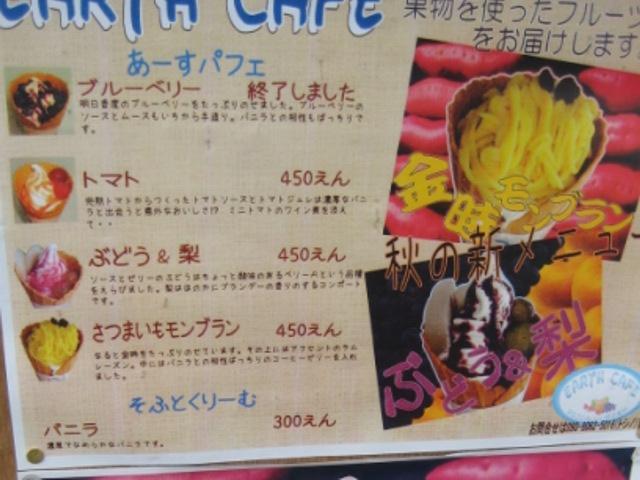 EARTH CAFE
果物を使ったフルーツ
をお届けします
あーすパフェ
ブルーベリー 終了しました
明日香産のブルーベリーをたっぷりのせました。ブルーベリーの
ソースとムースもいちから手造り。バニラとの相性もばっちりで
す。
トマト 450えん
完熟トマトからつくったトマトソースとトマトジュレは濃厚なバニ
ラと出会うと意外なおいしさ!? ミニトマトのワイン煮を添え
て・・
ぶどう & 梨 450えん
ソースとゼリーのぶどうはちょっと酸味のあるベリーAという品種
をえらびました。梨はほのかにブランデーの香りのするコンポート
です。
さつまいもモンブラン 450えん
なると金時をたっぷりのせています。その上にはアクセントのラム
レーズン。中にはバニラとの相性ばっちりのコーヒーゼリーを入れ
ました。
そふとくりーむ
バニラ 300えん
濃厚でなめらかなバニラです。
金時
モンブラン
秋の新メニュー
ぶどう&梨
EARTH CAFE
お問合せは